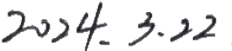 2024. 3.22